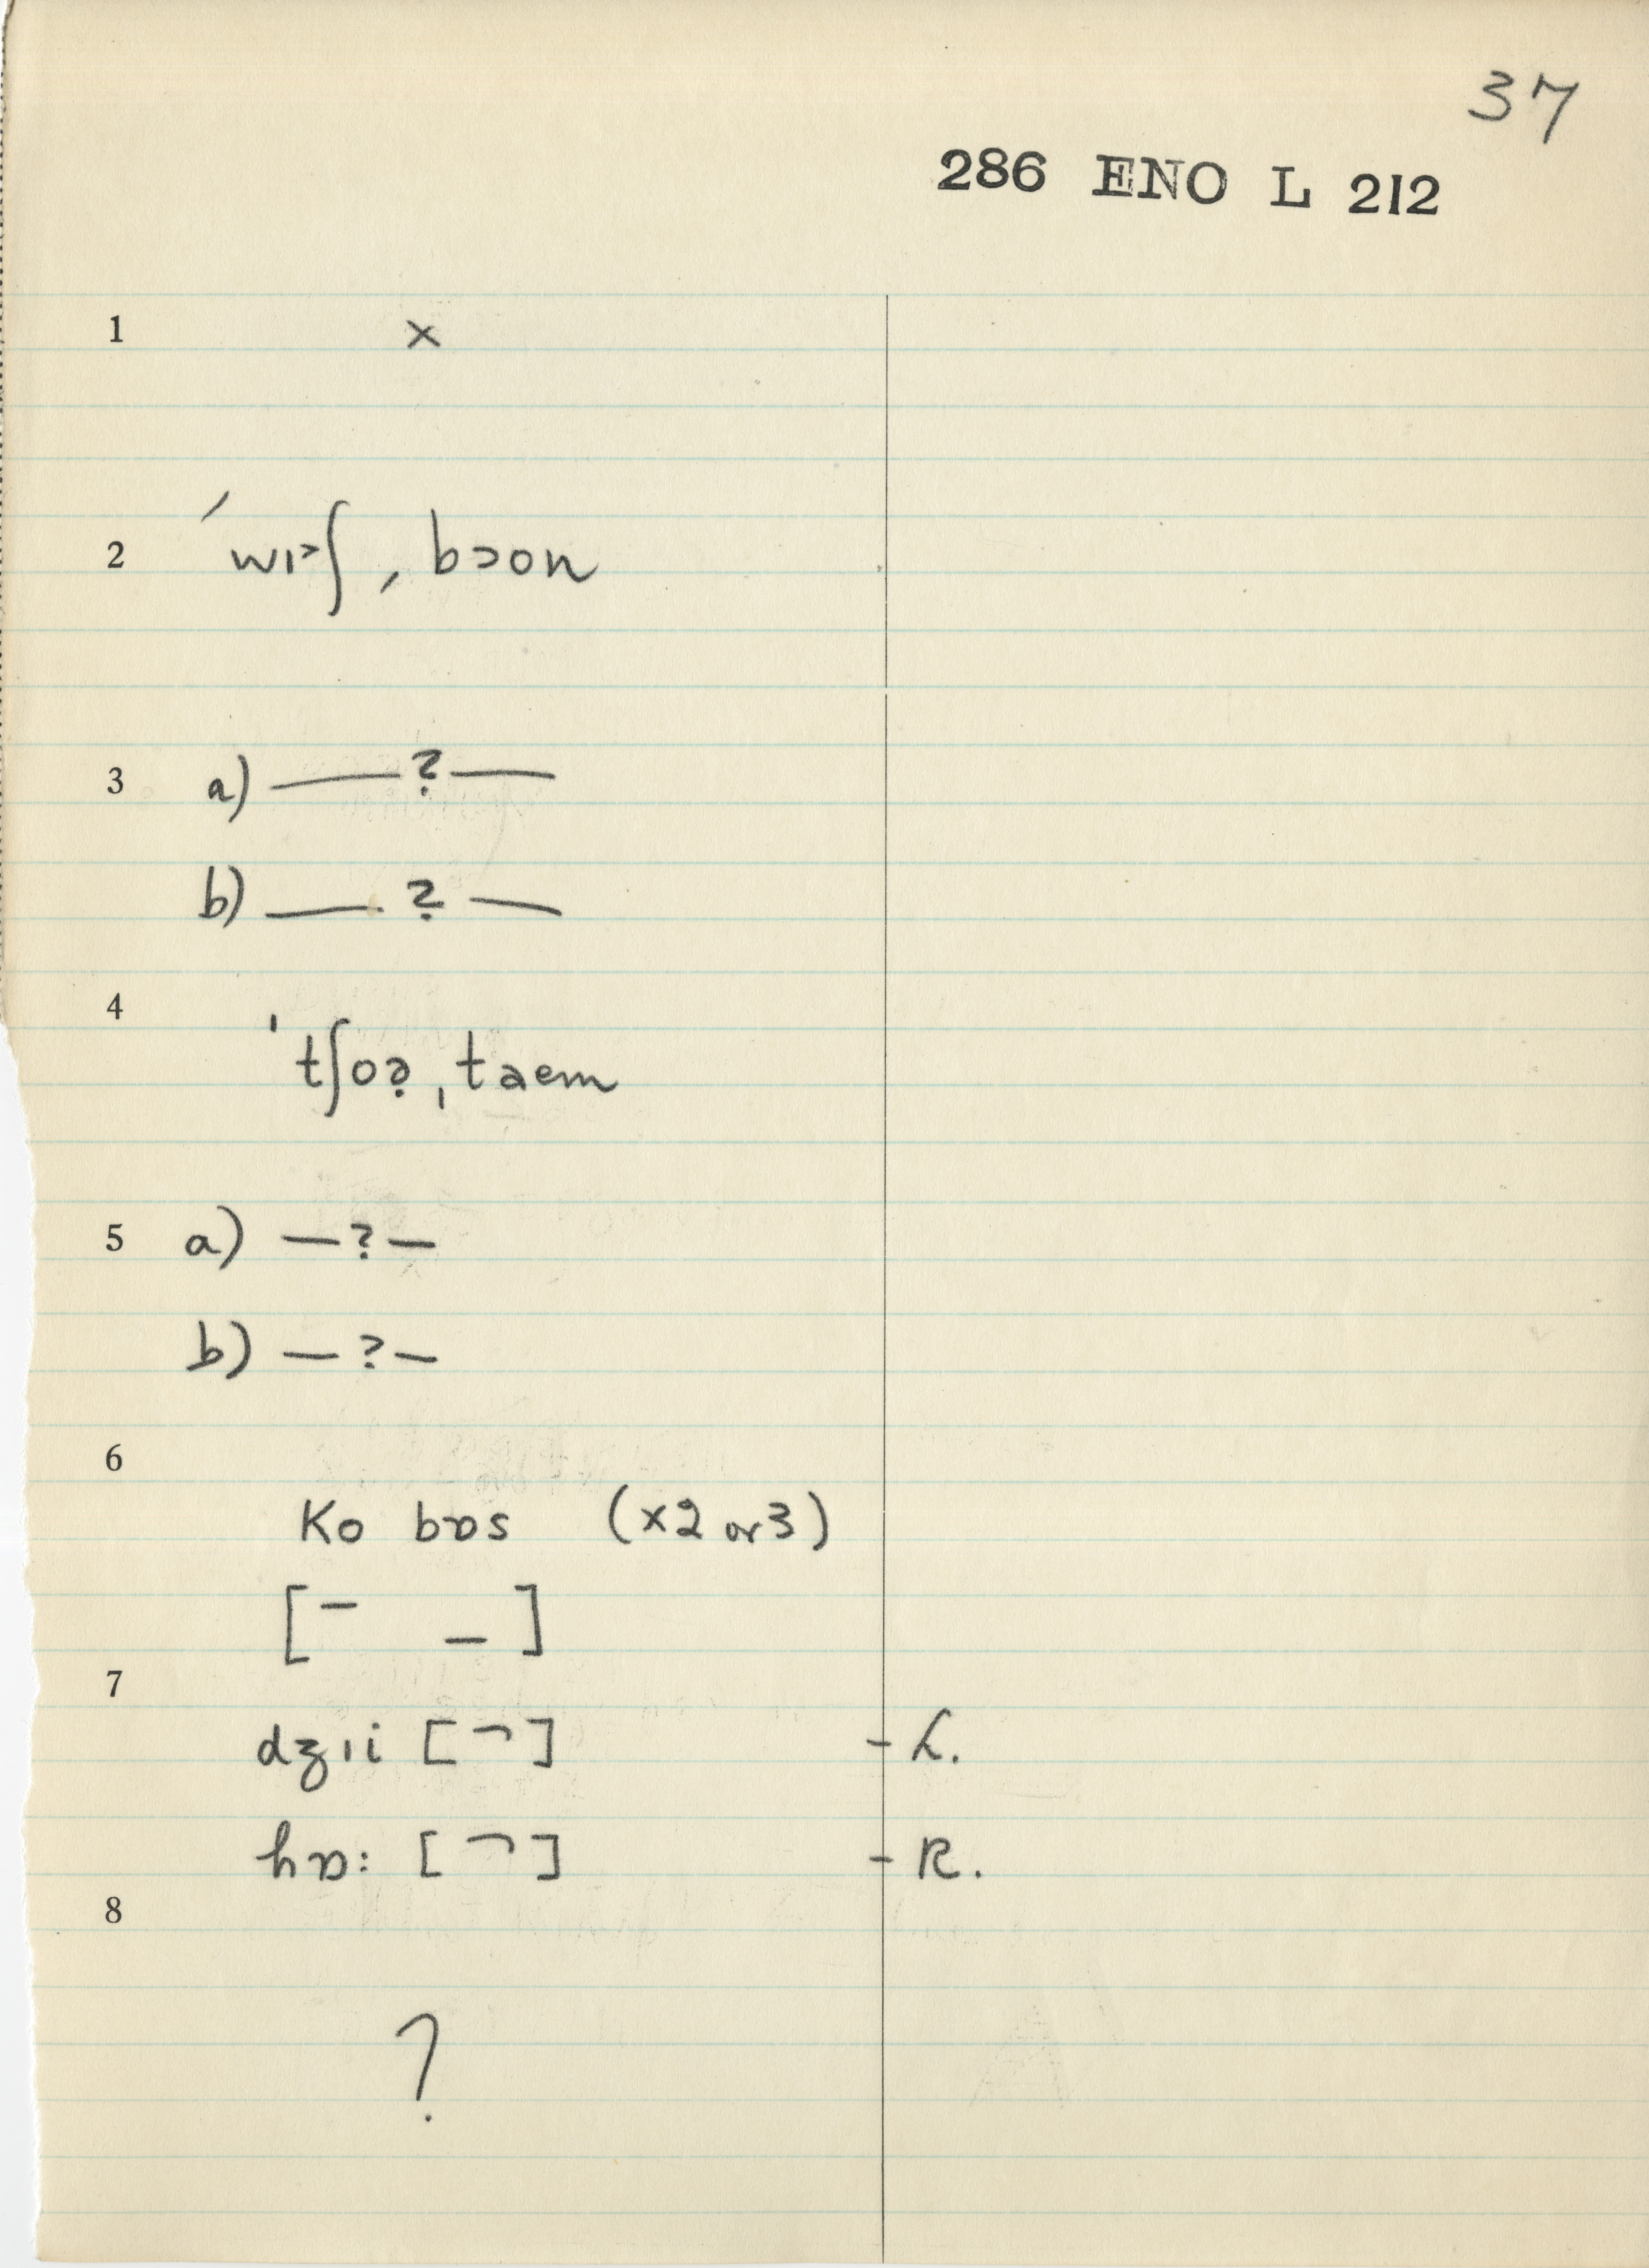 37
286 ENO L 212
1 ×
2 ˈwɪ˃ʃ ˌbɔon
3 a) —?—
b) —?—
4 ˈtʃoə̣ ˌtaem
5 a) —?—
b) —?—
6
Ko bɒs (×2 or 3)
[¯ _]
7
dʒɪi [¬] - L.
hɒ: [¬] - R.
8
?